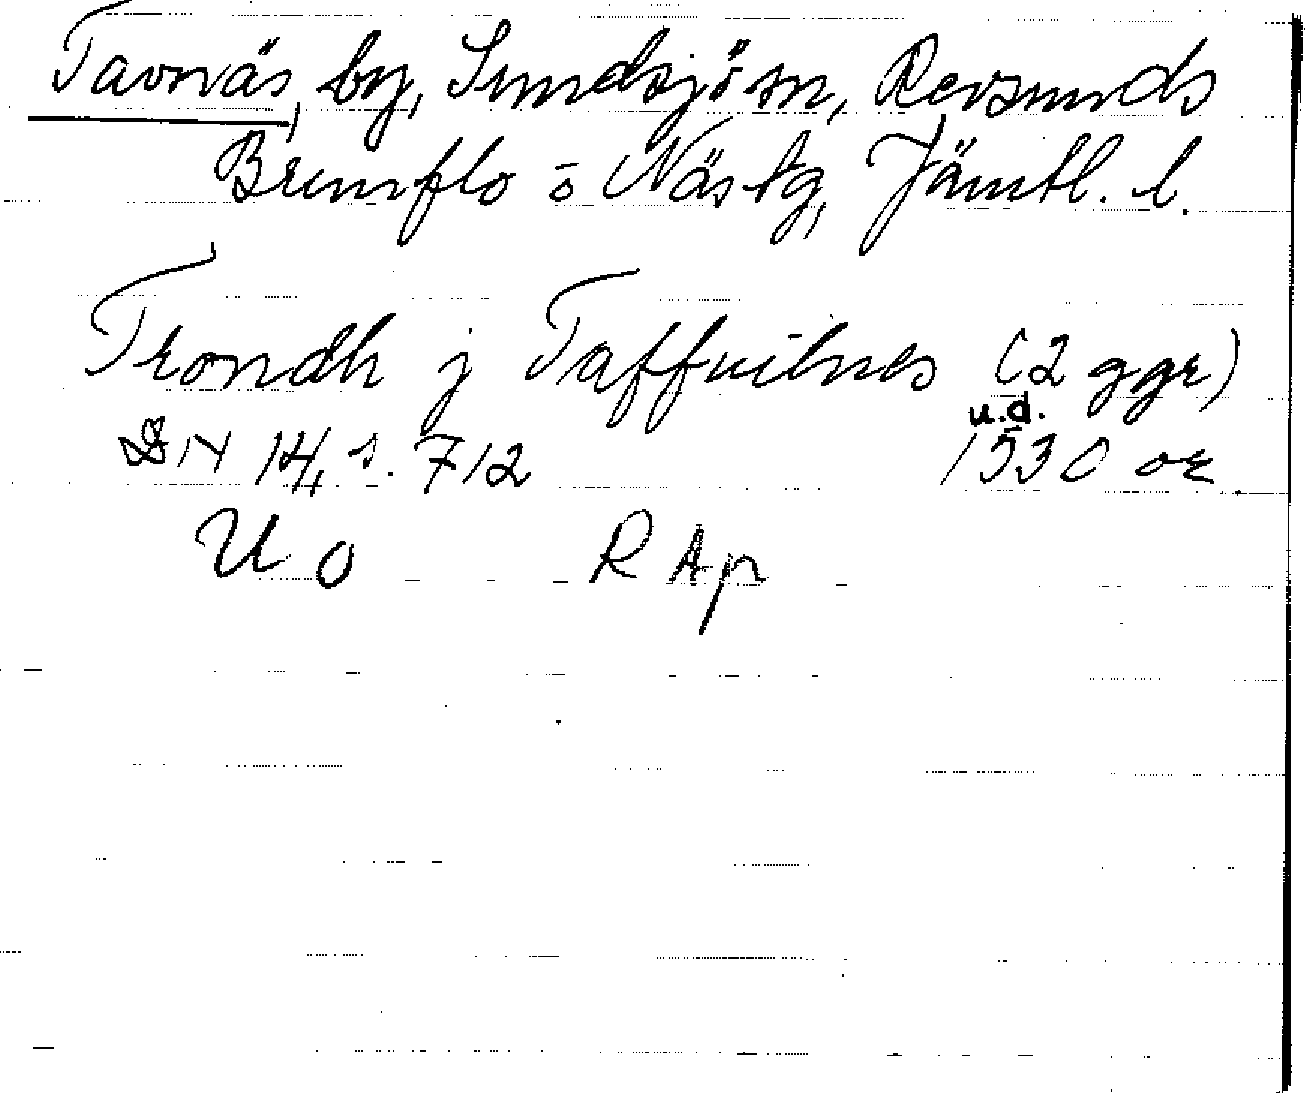 Tavnäs, by, Sundsjö sn, Revsunds
Brunflo o Näs tg, Jämtl. l.
Trondh j Taffuilnes (2 ggr)
u.d.
DN 14, s. 712 1530 or
U o R Ap